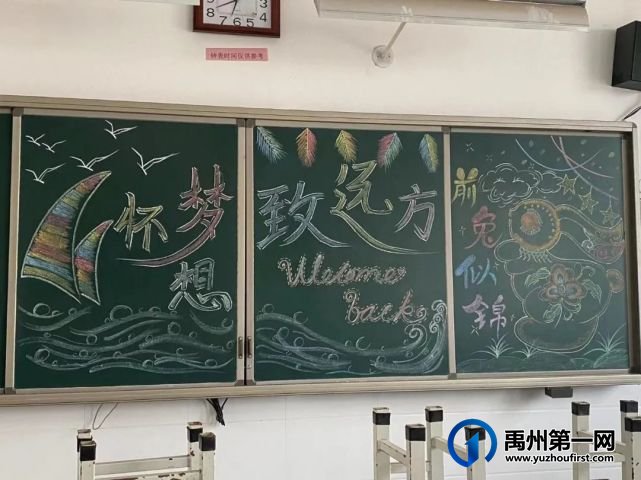 8 7 6 5 4 3
钟表时间仅供参考
怀梦想
致远方
Welcome
back
前兔似锦
禹州第一网
www.yuzhoufirst.com